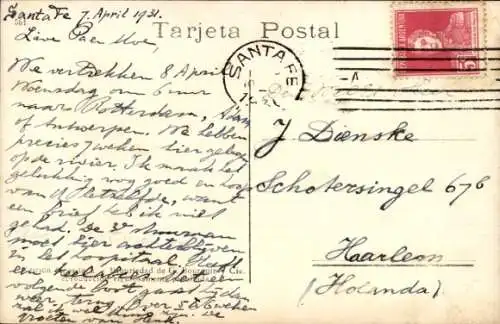 Santa Fe 7 April 1931.
Tarjeta Postal
Lieve Pa en Moe,
We vertrekken 8 April
Woensdag om 6 uur
naar Rotterdam,
of Antwerpen. We hebben
precies 7 weken hier gelegen
op de rivier. Ik maak het
gelukkig nog goed en hoop
van U hetzelfde, want
een brief heb ik niet
gehad. De
moet hier achterblijven
in het hospitaal
een
volgende boot gaat ie dan
weer terug. Over 5 à 6 weken
zal ik wel thuis zijn. De
groeten van Henk.
SANTA FE
J Dienske
Schotersingel 67b
Haarlem
(Holanda)